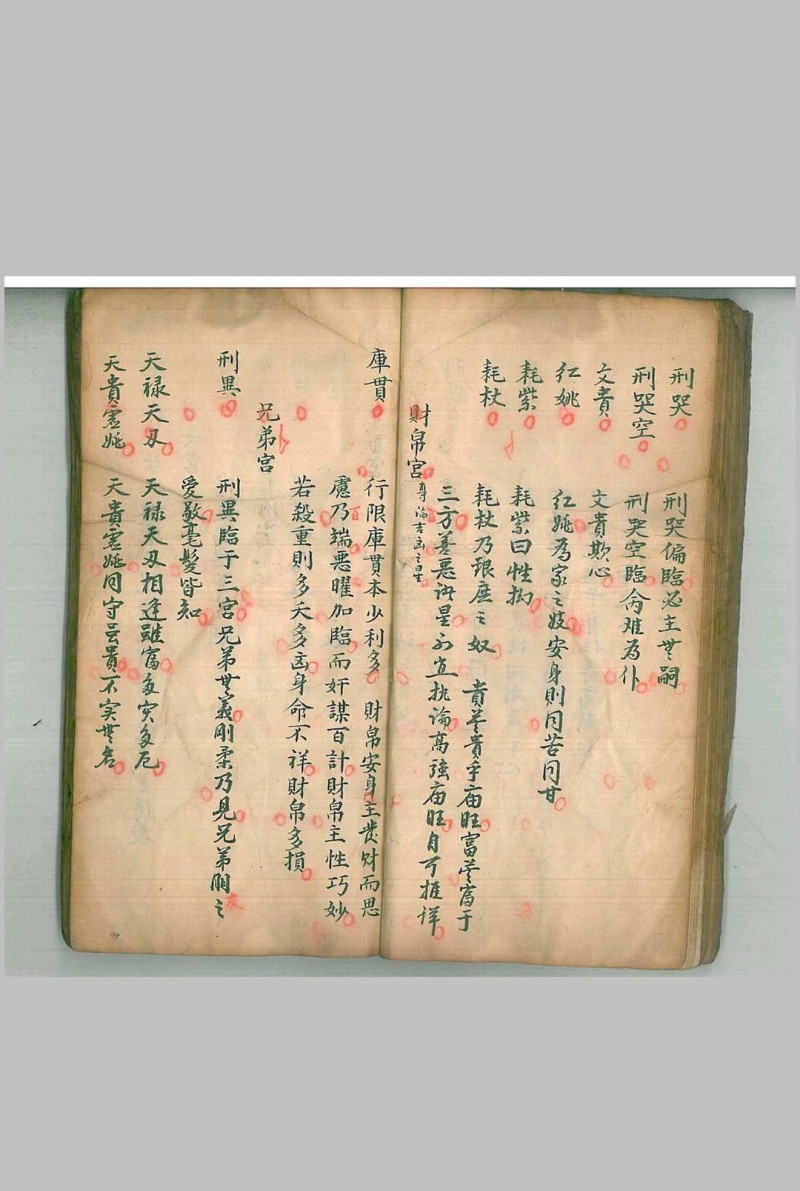 刑哭 刑哭偏临必主世嗣
刑哭空 刑哭空臨禽难為仆
文貴 文貴欺心
红姚 红姚為家之妓安身則同苦同甘
耗紫 耗紫曰性拗
耗杖 耗杖乃琅庶之奴 貴莫貴乎庙旺富莫富于
三方善惡諸星不宜执論高強庙旺自可推詳
財帛宮 專論吉凶之星
庫貫 行限庫貫本少利多 財帛安身主發财而思
慮乃端惡曜加臨而奸謀百計財帛主性巧妙
若殺重則多夭多凶身命不祥財帛多損
兄弟宮
刑異 刑異臨于三宮兄弟世義剛柔乃見兄弟朋之
友
愛敬毫髮皆知
天祿天刃 天祿天刃相逢雖富多灾多厄
天貴虛姚 天貴虛姚同守云貴不实世名